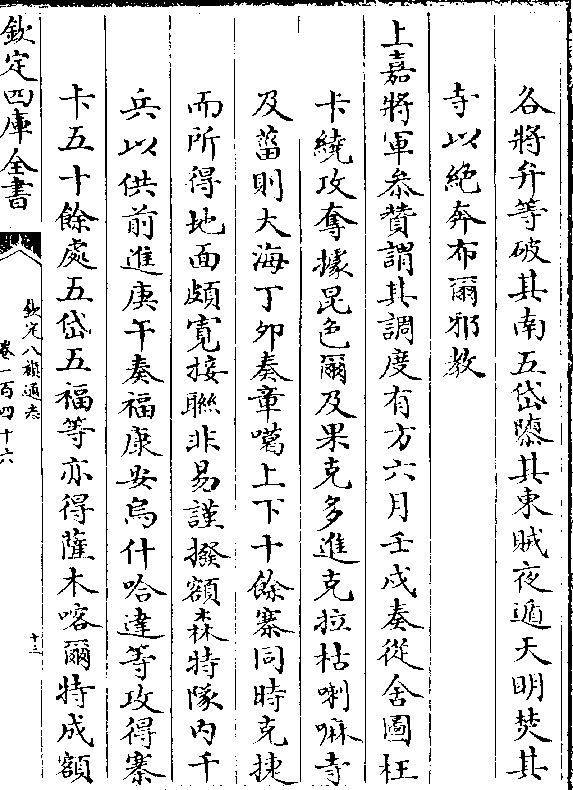 各將弁等破其南五岱隳其東賊夜遁天明焚其
寺以絶奔布爾邪教
上嘉將軍參贊謂其調度有方六月壬戌奏從舍圖枉
卡繞攻奪據昆色爾及果克多進克拉枯喇嘛寺
及菑則大海丁夘奏章噶上下十餘寨同時克捷
而所得地面頗寛接聨非易謹撥額森特隊内千
兵以供前進庚午奏福康安烏什哈達等攻得寨
卡五十餘處五岱五福等亦得薩木喀爾特成額
欽定四庫全書
欽定八旗通志
卷一百四十六
十三